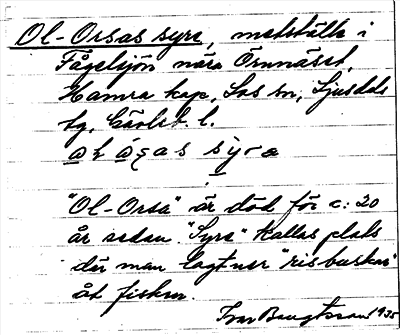 Ol-Orsas syre, metställe i
Fågelsjön nära Örnnäset,
Hamra kap, Los sn, Ljusdals
tg, Gävleb. l.
"Ol-Orsa" är död för c:20
år sedan. "Syre" kallas plats
där man lagt ner "risbuskar"
åt fisken.
Ivar Bengtsson 1935